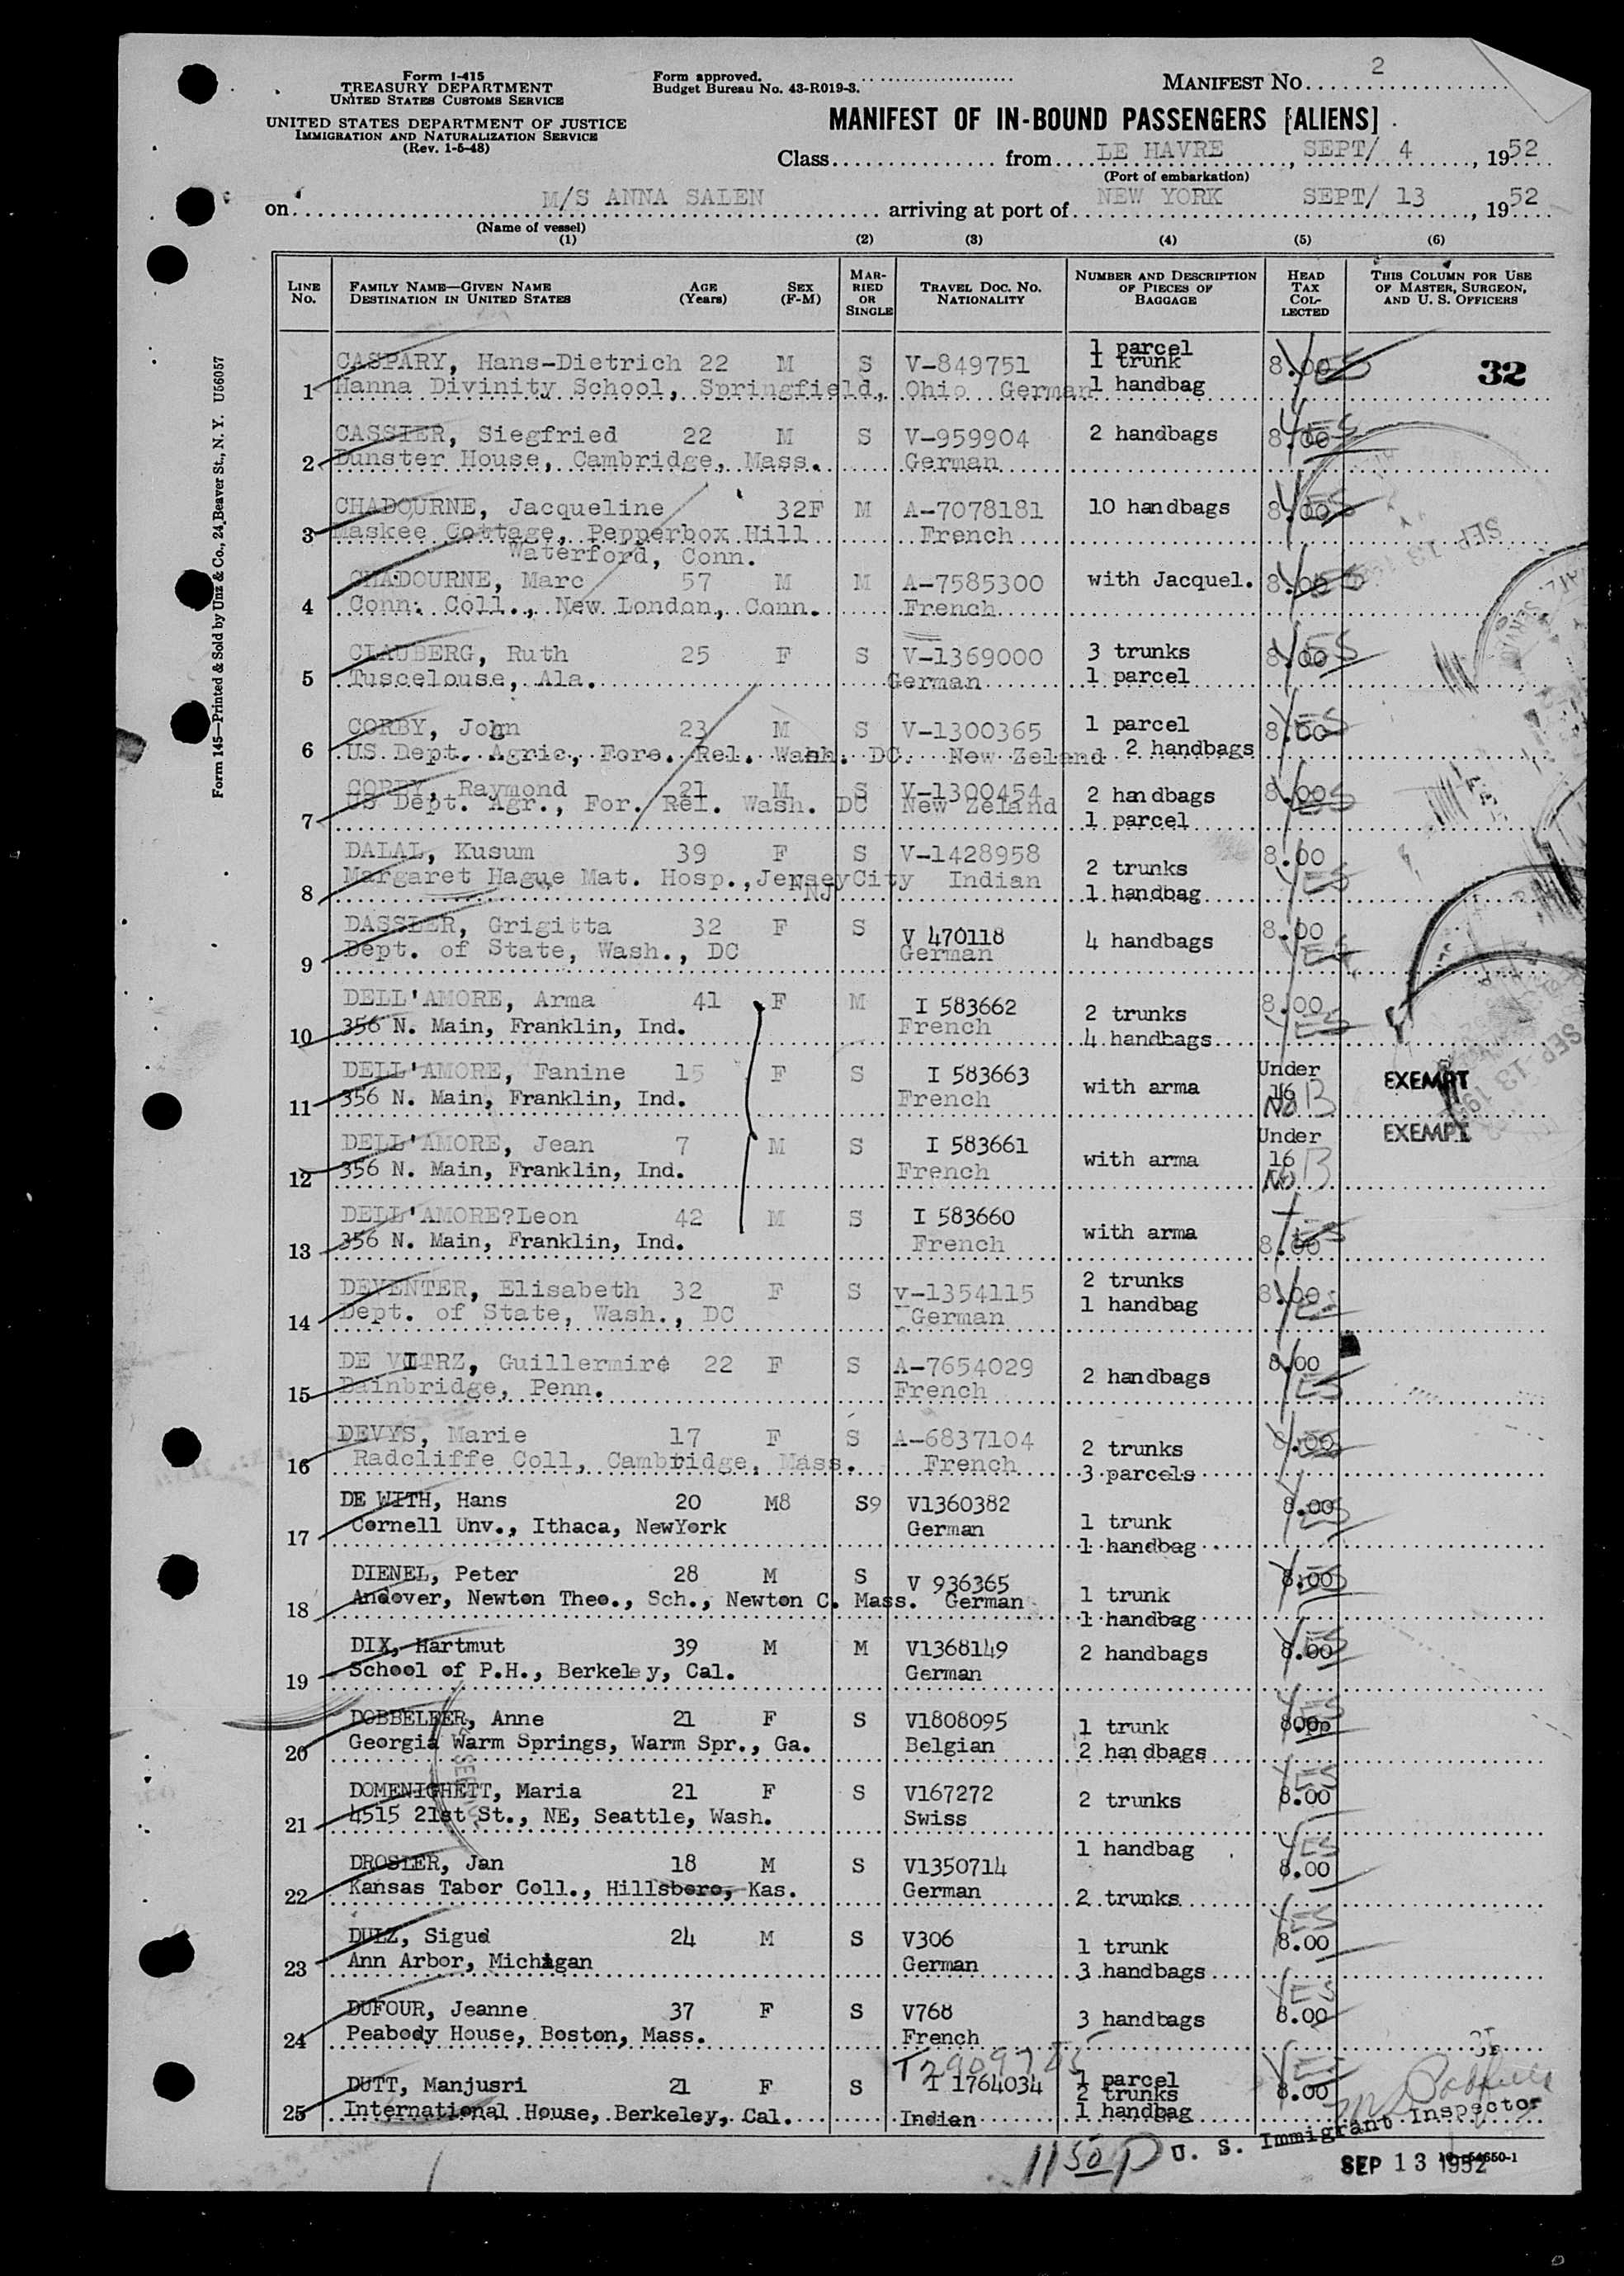 Form 1-415
TREASURY DEPARTMENT
UNITED STATES CUSTOMS SERVICE
UNITED STATES DEPARTMENT OF JUSTICE
IMMIGRATION AND NATURALIZATION SERVICE
(Rev. 1-5-48)
Form approved.
Budget Bureau No. 43-R019-3.
MANIFEST NO. 2
MANIFEST OF IN-BOUND PASSENGERS [ALIENS]
Class from LE HAVRE, SEPT/ 4, 1952
(Port of embarkation)
on M/S ANNA SALEN arriving at port of NEW YORK SEPT/ 13, 1952
(Name of vessel)
(1) (2) (3) (4) (5) (6)
LINE No. FAMILY NAME—GIVEN NAME DESTINATION IN UNITED STATES AGE (Years) SEX (F-M) MARRIED OR SINGLE TRAVEL DOC. NO. NATIONALITY NUMBER AND DESCRIPTION OF PIECES OF BAGGAGE HEAD TAX COLLECTED THIS COLUMN FOR USE OF MASTER, SURGEON, AND U. S. OFFICERS
Form 145—Printed & Sold by Unz & Co., 24 Beaver St., N. Y. U56057
1 parcel
CASPARY, Hans-Dietrich 22 M S V-849751 1 trunk 8.00 YES 32
1 Hanna Divinity School, Springfield, Ohio German 1 handbag
CASSIER, Siegfried 22 M S V-959904 2 handbags 8.00 YES
2 Dunster House, Cambridge, Mass. German
CHADOURNE, Jacqueline 32F M A-7078181 10 handbags 8.00 YES
3 Maskee Cottage, Pepperbox Hill French
Waterford, Conn.
CHADOURNE, Marc 57 M M A-7585300 with Jacquel. 8.00
4 Conn. Coll., New London, Conn. French
CLAUBERG, Ruth 25 F S V-1369000 3 trunks 8.00 YES
5 Tuscelouse, Ala. German 1 parcel
CORBY, John 23 M S V-1300365 1 parcel 8.00 YES
6 US Dept. Agric, Fore. Rel. Wash. DC. New Zeland 2 handbags
CORBY, Raymond 21 M S V-1300454 2 handbags 8.00
US Dept. Agr., For. Rel. Wash. DC New Zeland
7 1 parcel
DALAL, Kusum 39 F S V-1428958 2 trunks 8.00
8 Margaret Hague Mat. Hosp., JerseyCity Indian 1 handbag YES
NJ
DASSLER, Grigitta 32 F S V 470118 4 handbags 8.00
9 Dept. of State, Wash., DC German YES
DELL'AMORE, Arma 41 F M I 583662 2 trunks 8.00
10 356 N. Main, Franklin, Ind. French 4 handbags YES
DELL'AMORE, Fanine 15 F S I 583663 with arma Under 16 EXEMPT
11 356 N. Main, Franklin, Ind. French No
DELL'AMORE, Jean 7 M S I 583661 with arma Under 16 EXEMPT
12 356 N. Main, Franklin, Ind. French No
DELL'AMORE?Leon 42 M S I 583660 with arma 8.00 YES
13 356 N. Main, Franklin, Ind. French
DEVENTER, Elisabeth 32 F S v-1354115 2 trunks 8.00
14 Dept. of State, Wash., DC German 1 handbag YES
DE VITRZ, Guillermire 22 F S A-7654029 2 handbags 8.00
15 Bainbridge, Penn. French YES
DEVYS, Marie 17 F S A-6837104 2 trunks 8.00
16 Radcliffe Coll, Cambridge, Mass. French 3 parcels
DE WITH, Hans 20 M8 S9 V1360382 1 trunk 8.00
17 Cornell Unv., Ithaca, NewYork German 1 handbag YES
DIENEL, Peter 28 M S V 936365 1 trunk 8.00 YES
18 Andover, Newton Theo., Sch., Newton C. Mass. German 1 handbag
DIX, Hartmut 39 M M V1368149 2 handbags 8.00 YES
19 School of P.H., Berkeley, Cal. German
DOBBELEER, Anne 21 F S V1808095 1 trunk 8.00 YES
20 Georgia Warm Springs, Warm Spr., Ga. Belgian 2 handbags
DOMENIGHETT, Maria 21 F S V167272 2 trunks 8.00 YES
21 4515 21st St., NE, Seattle, Wash. Swiss
1 handbag YES
DROSLER, Jan 18 M S V1350714 8.00
22 Kansas Tabor Coll., Hillsboro, Kas. German 2 trunks
DULZ, Sigud 24 M S V306 1 trunk 8.00 YES
23 Ann Arbor, Michigan German 3 handbags
DUFOUR, Jeanne 37 F S V768 3 handbags 8.00 YES
24 Peabody House, Boston, Mass. French
DUTT, Manjusri 21 F S I 1764034 1 parcel 2 trunks 8.00 YES
25 International House, Berkeley, Cal. Indian 1 handbag
1150 P U. S. Immigrant Inspector
SEP 13 1952